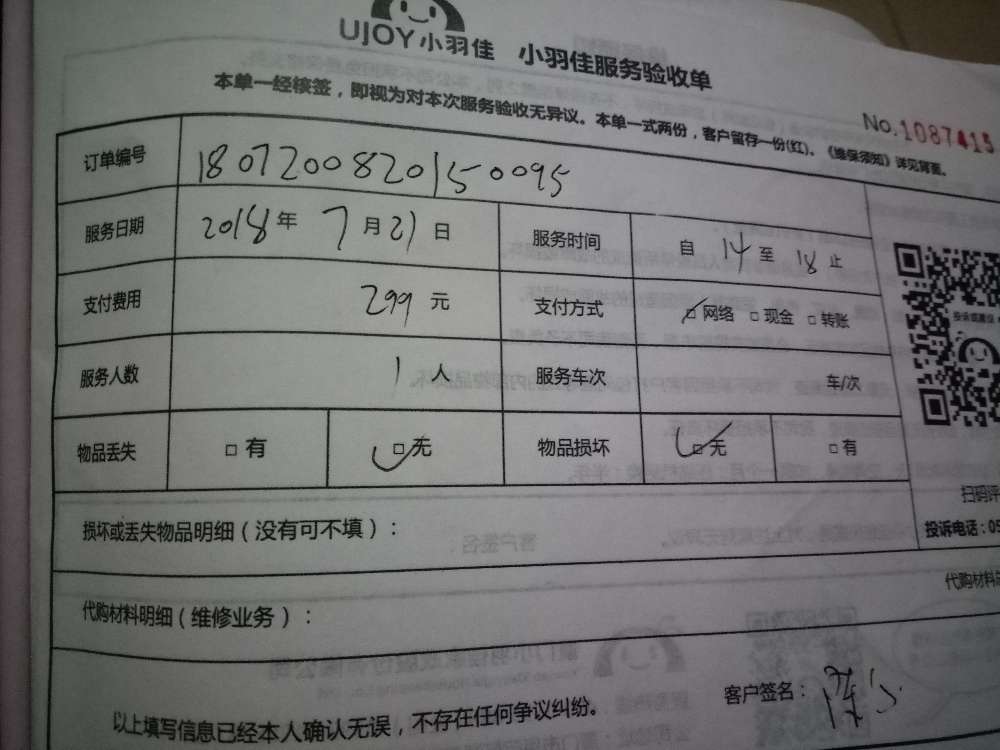 UJOY小羽佳 小羽佳服务验收单
本单一经核签，即视为对本次服务验收无异议。本单一式两份，客户留存一份(红)。《维保须知》详见背面。
No.1087415
订单编号 1807200820150095
服务日期 2018年 7月21日 服务时间 自 14 至 18 止
支付费用 299 元 支付方式 □网络 □现金 □转账
服务人数 1 人 服务车次 车/次
物品丢失 □有 □无 物品损坏 □无 □有
投诉或建议
扫码评
损坏或丢失物品明细（没有可不填）：
投诉电话：05
代购材料明细（维修业务）：
代购材料
以上填写信息已经本人确认无误，不存在任何争议纠纷。
客户签名：